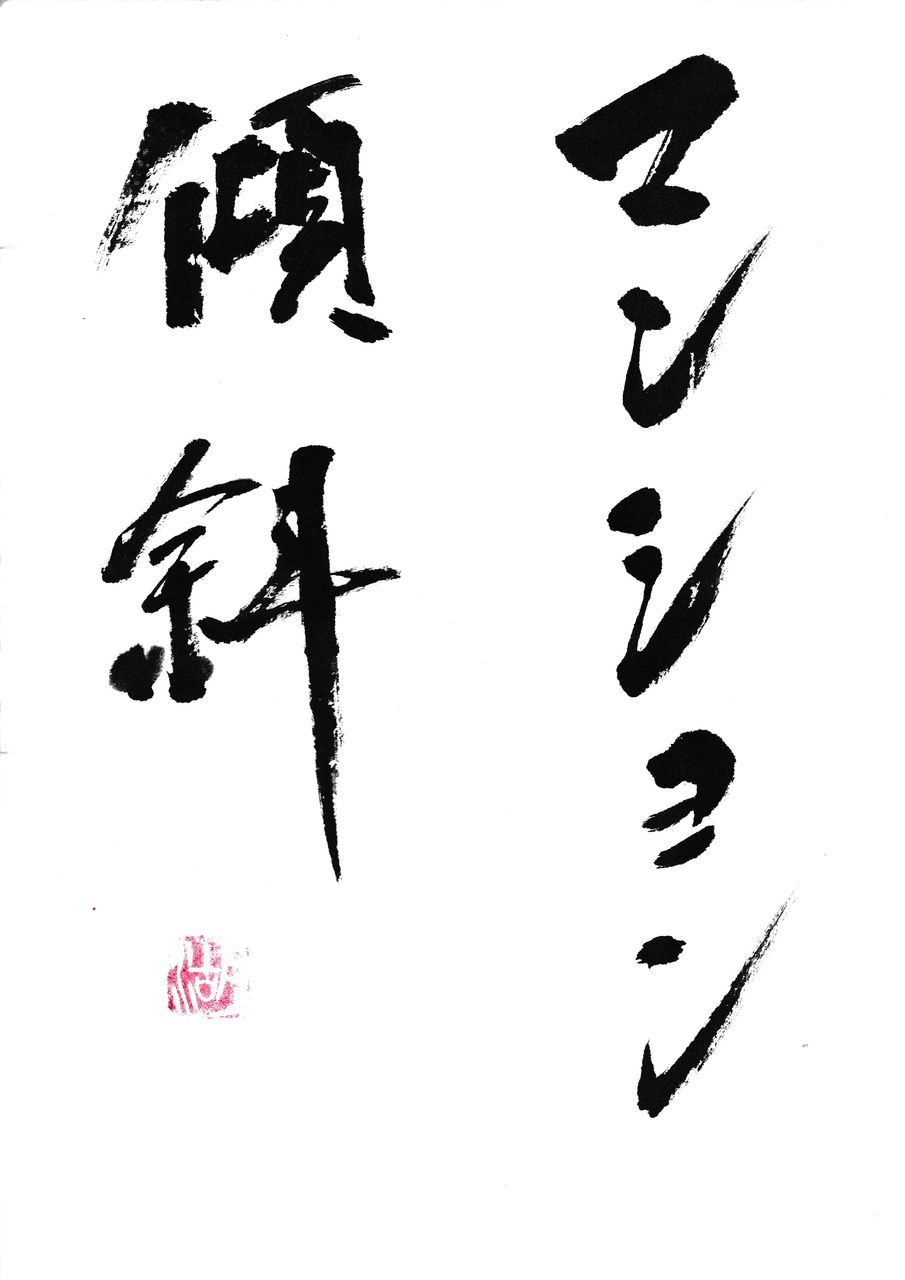 マンション
傾斜